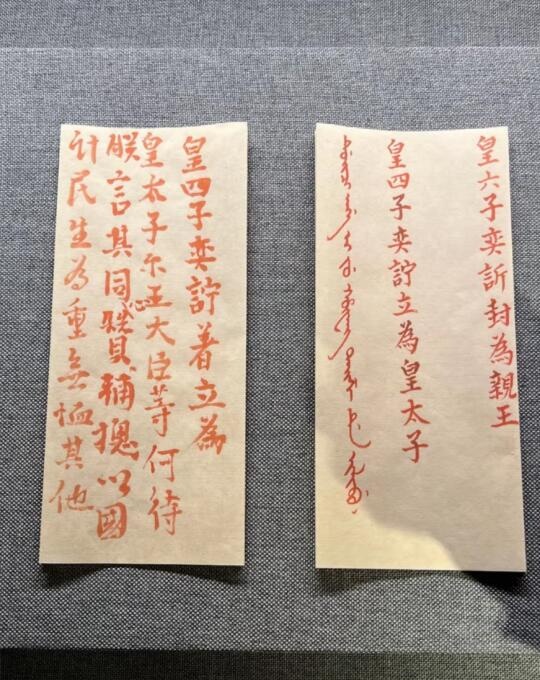 皇六子奕訢封為親王
皇四子奕詝立為皇太子
皇四子奕詝着立為
皇太子尔王大臣等何待
朕言其同心贊輔揔以國
計民生為重無恤其他